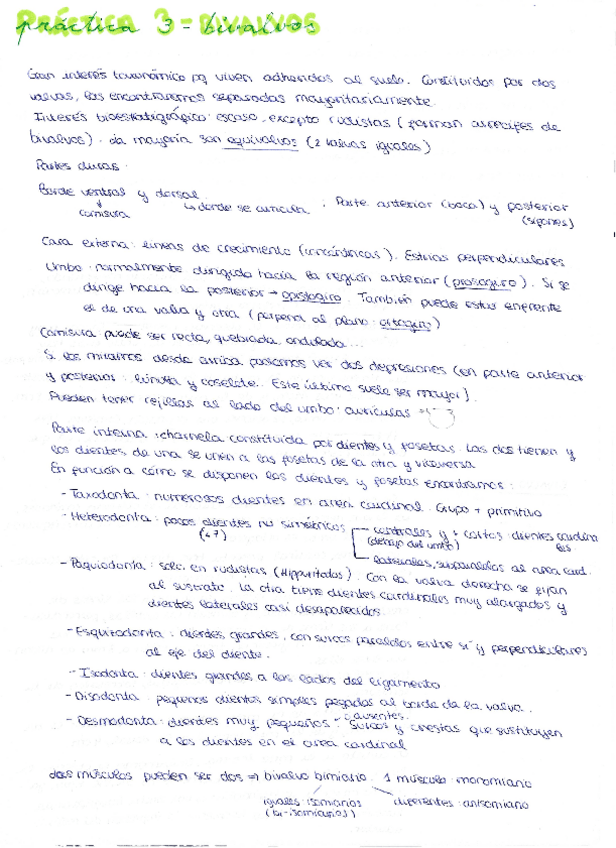 PRÁCTICA 3 - BIVALVOS
práctica 3 - bivalvos
Gran interés taxonómico pq viven adheridos al suelo. Constituidos por dos
valvas, las encontraremos separadas mayoritariamente.
Interés bioestratigráfico: escaso, excepto rudistas (forman arrecifes de
bivalvos). La mayoría son equivalvos (2 valvas iguales)
Partes duras:
Borde ventral y dorsal ; Parte anterior (boca) y posterior
comisura ↳ donde se articula (sifones)
Cara externa: líneas de crecimiento (concéntricas). Estrías perpendiculares
Umbo: normalmente dirigido hacia la región anterior (prosogiro). Si se
dirige hacia la posterior → opistogiro. También puede estar enfrente
el de una valva y otra (perpen al plano: ortogiro)
Comisura puede ser recta, quebrada, ondulada...
Si los miramos desde arriba podemos ver dos depresiones (en parte anterior
y posterior: lúnula y coselete. Este último suele ser mayor).
Pueden tener rejillas al lado del umbo: aurículas
Parte interna: charnela constituida por dientes y fosetas. Las dos tienen y
los dientes de una se unen a las fosetas de la otra y viceversa
En función a cómo se disponen los dientes y fosetas encontramos:
- Taxodonta: numerosos dientes en área cardinal. Grupo + primitivo
- Heterodonta: pocos dientes no simétricos centrales y + cortos: dientes cardinales
(<7) (debajo del umbo)
laterales, subparalelos al área card.
- Paquiodonta: solo en rudistas (Hippuritados). Con la valva derecha se fijan
al sustrato. La otra tiene dientes cardinales muy alargados y
dientes laterales casi desaparecidos.
- Esquizodonta: dientes grandes, con surcos paralelos entre sí y perpendiculares
al eje del diente.
- Isodonta: dientes grandes a los lados del ligamento
- Disodonta: pequeños dientes simples pegados al borde de la valva.
- Desmodonta: dientes muy pequeños o ausentes. Surcos y crestas que sustituyen
a los dientes en el área cardinal
Los músculos pueden ser dos ⇒ bivalvo bimiario. 1 músculo: monomiario
iguales: isomiarios diferentes: anisomiario